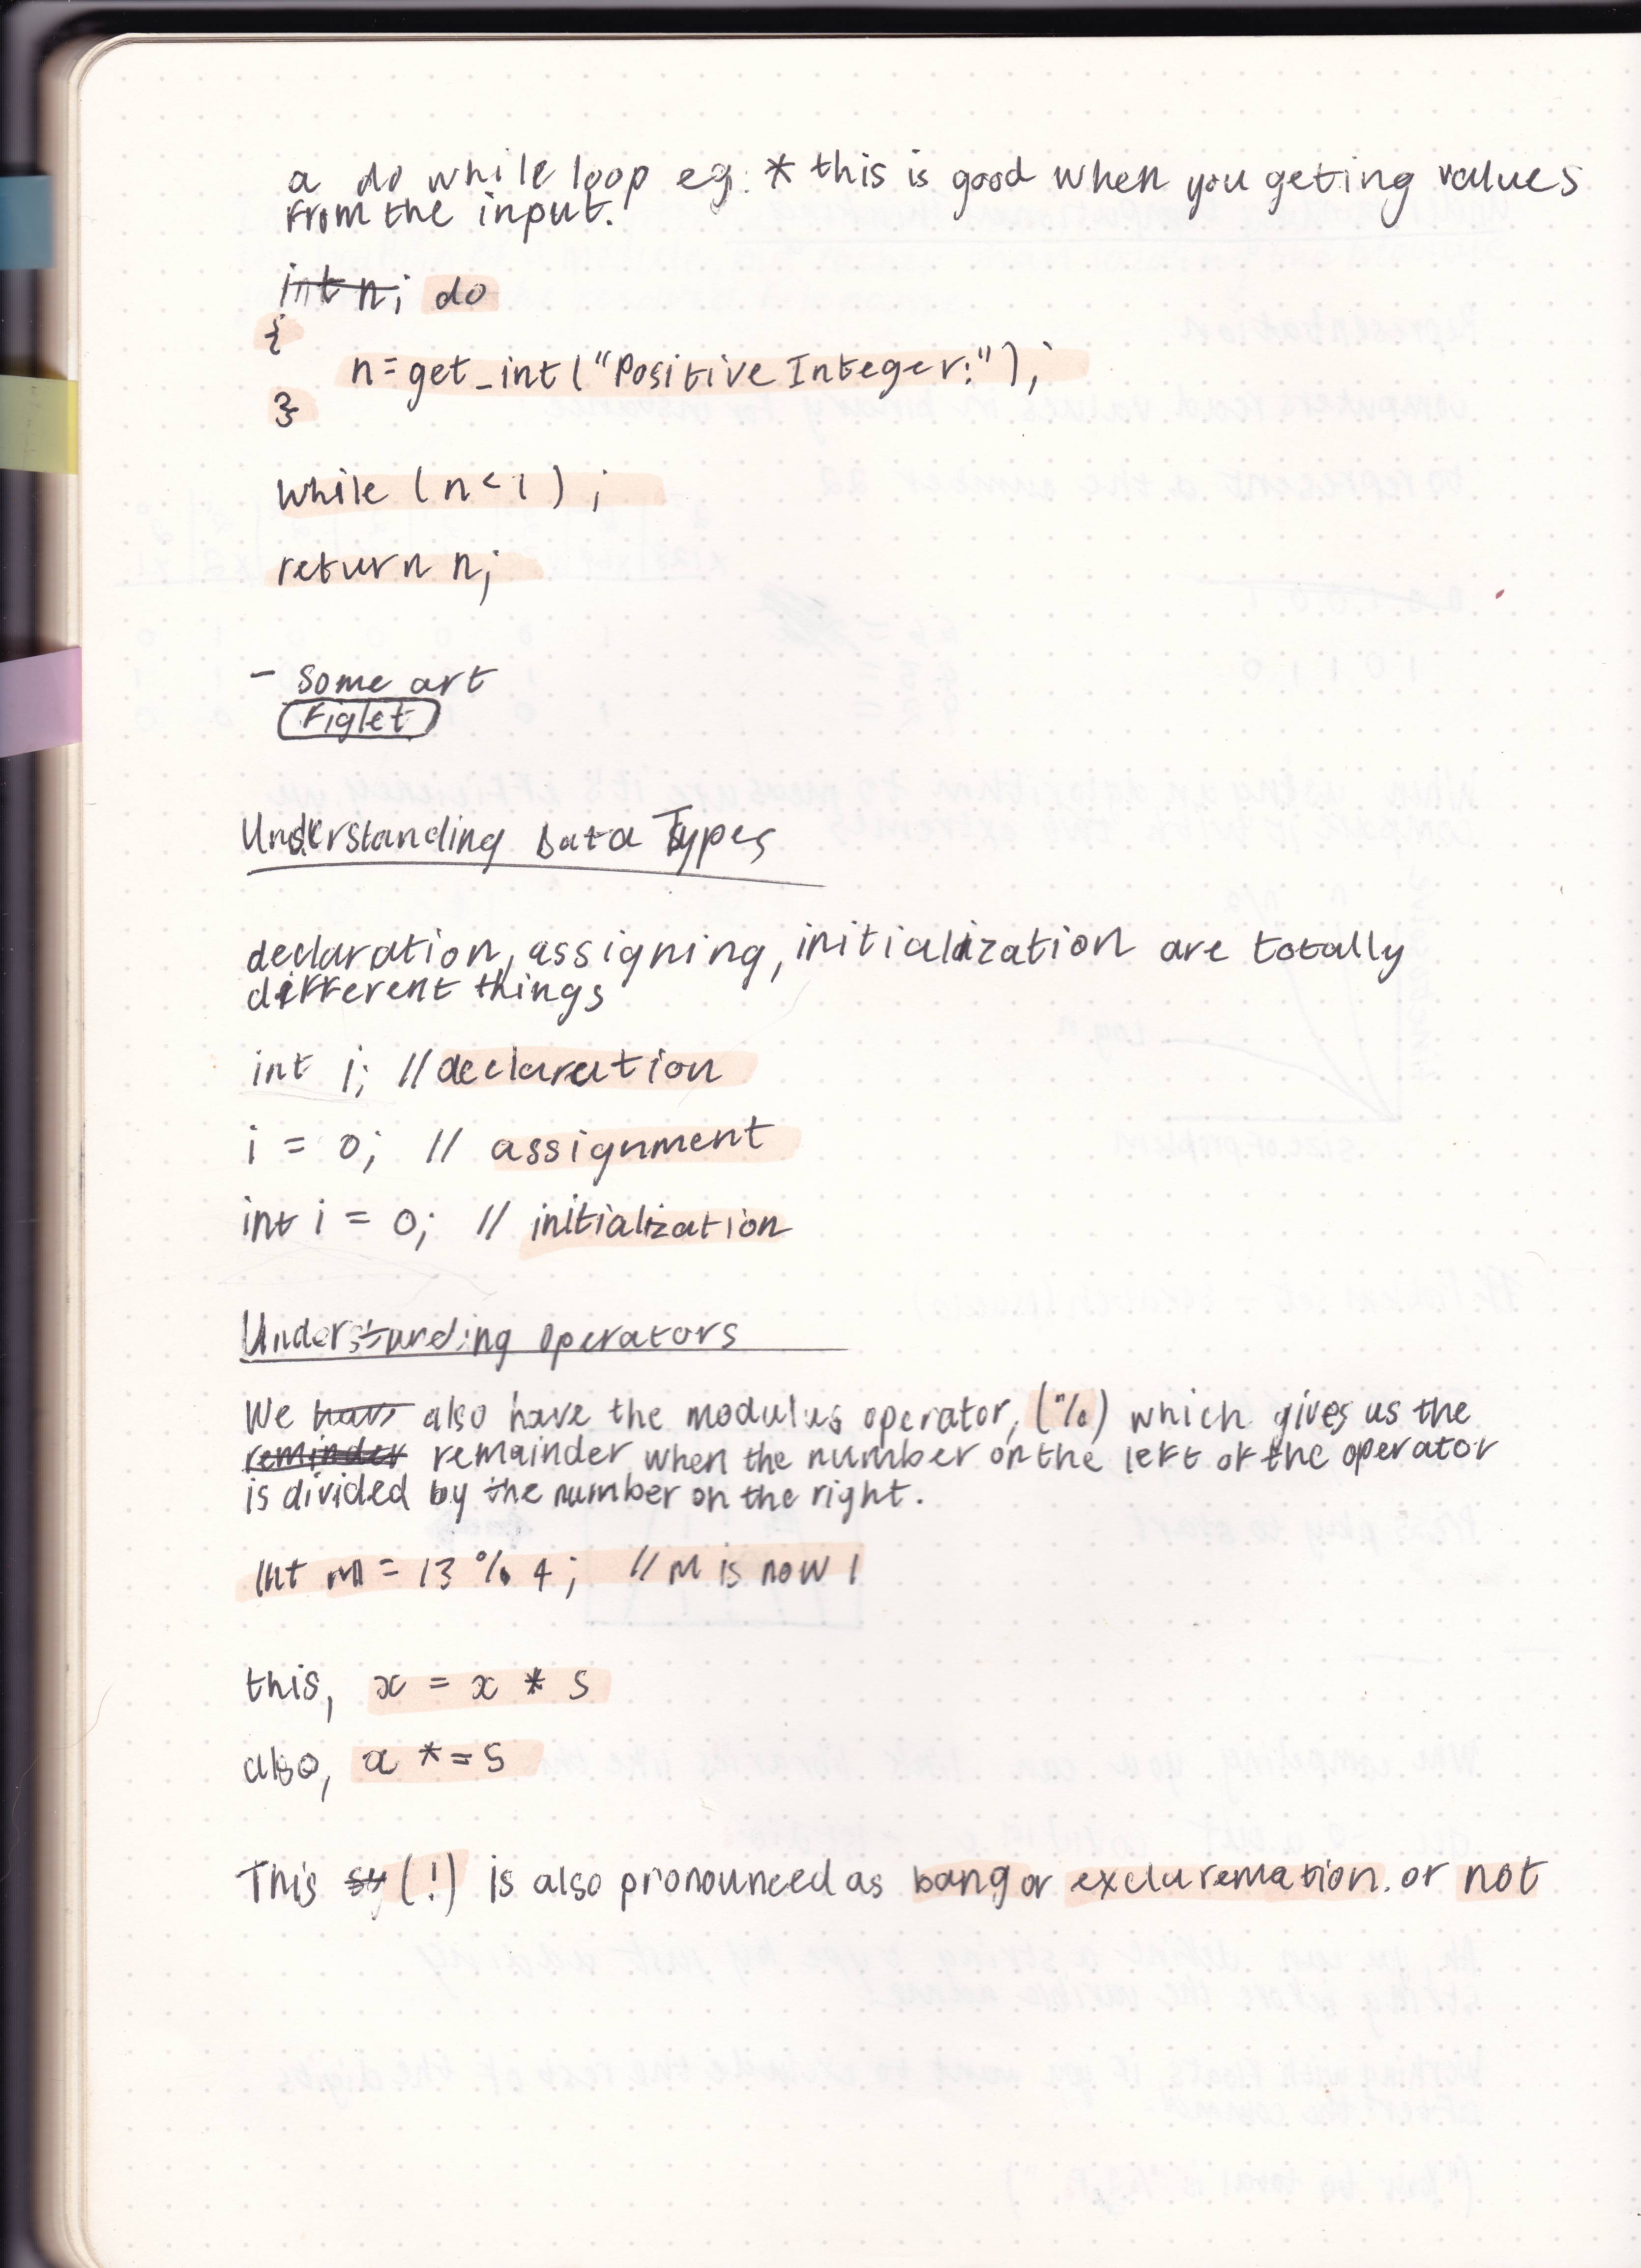 a do while loop eg: * this is good when you geting values
from the input.
int n; do
{
n=get_int("Positive Integer:");
}
while (n<1);
return n;
- some art
Figlet
Understanding Data Types
declaration, assigning, initialization are totally
different things
int i; // declaration
i = 0; // assignment
int i = 0; // initialization
Understanding operators
We have also have the modulus operator, (%) which gives us the
reminder remainder when the number on the left of the operator
is divided by the number on the right.
int m = 13 % 4; // m is now 1
this, x = x * 5
also, x *= 5
This sy (!) is also pronounced as bang or excluremation. or not